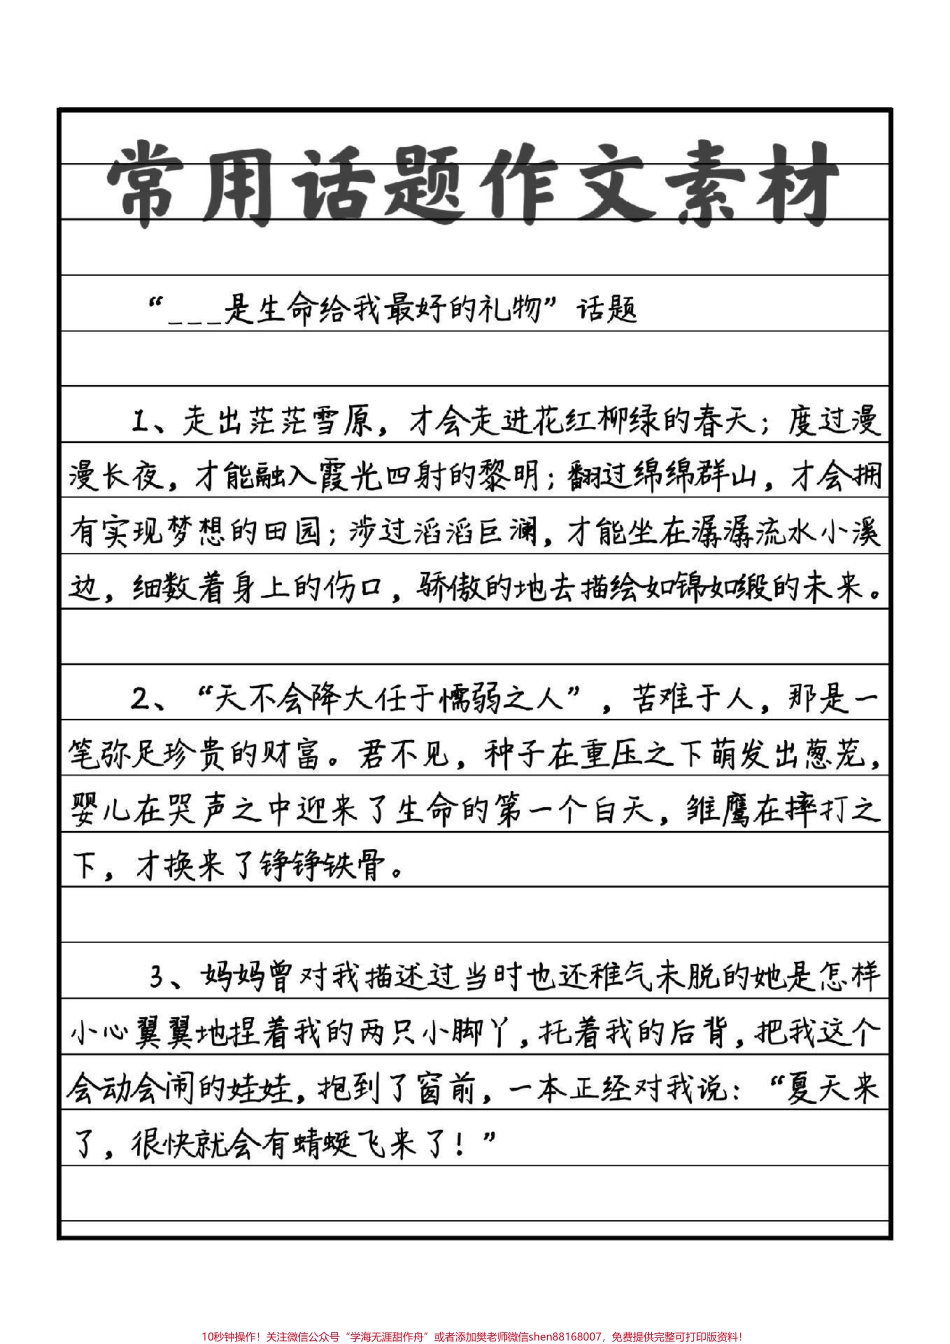 常用话题作文素材
“___是生命给我最好的礼物”话题
1、走出茫茫雪原，才会走进花红柳绿的春天；度过漫
漫长夜，才能融入霞光四射的黎明；翻过绵绵群山，才会拥
有实现梦想的田园；涉过滔滔巨澜，才能坐在潺潺流水小溪
边，细数着身上的伤口，骄傲的地去描绘如锦如缎的未来。
2、“天不会降大任于懦弱之人”，苦难于人，那是一
笔弥足珍贵的财富。君不见，种子在重压之下萌发出葱茏，
婴儿在哭声之中迎来了生命的第一个白天，雏鹰在摔打之
下，才换来了铮铮铁骨。
3、妈妈曾对我描述过当时也还稚气未脱的她是怎样
小心翼翼地捏着我的两只小脚丫，托着我的后背，把我这个
会动会闹的娃娃，抱到了窗前，一本正经对我说：“夏天来
了，很快就会有蜻蜓飞来了！”
10秒钟操作！关注微信公众号“学海无涯甜作舟”或者添加樊老师微信shen88168007，免费提供完整可打印版资料！